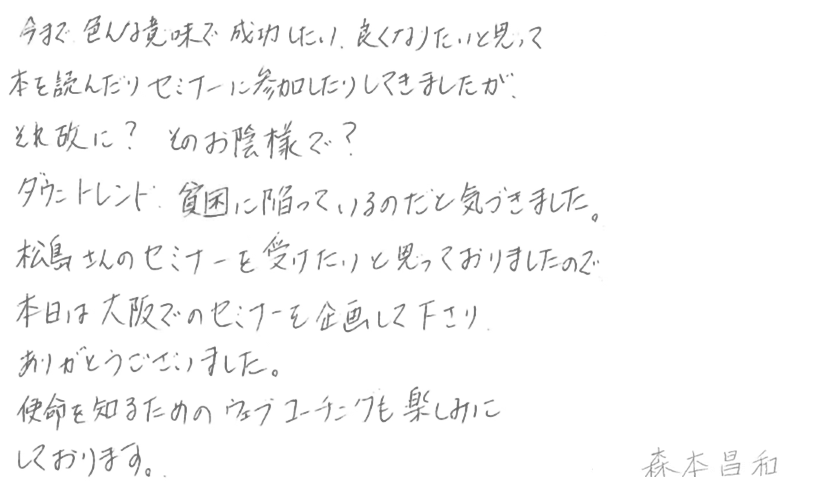 今まで色んな意味で成功したい、良くなりたいと思って
本を読んだりセミナーに参加したりしてきましたが、
それ故に？ そのお陰様で？
ダウントレンド、貧困に陥っているのだと気づきました。
松島さんのセミナーを受けたいと思っておりましたので
本日は大阪でのセミナーを企画して下さり、
ありがとうございました。
使命を知るためのウェブコーチングも楽しみに
しております。
森本昌和